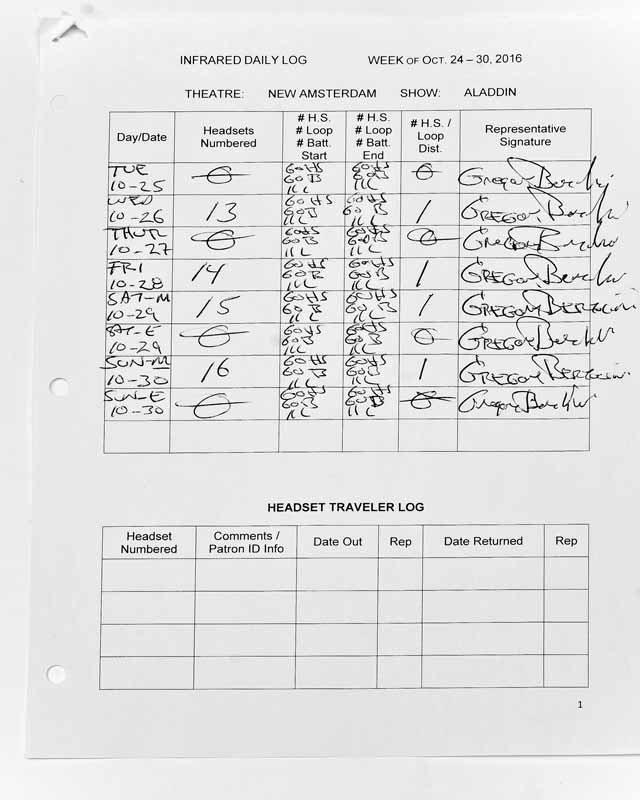 INFRARED DAILY LOG WEEK OF OCT. 24 – 30, 2016
THEATRE: NEW AMSTERDAM SHOW: ALADDIN
Day/Date Headsets Numbered # H.S. # Loop # Batt. Start # H.S. # Loop # Batt. End # H.S. / Loop Dist. Representative Signature
TUE 10-25 0 60HS 60B 11L 60HS 60B 11L 0 Gregory
WED 10-26 13 60HS 60B 11L 60HS 60B 11L 1 GREGORY
THUR 10-27 0 60HS 60B 11L 60HS 60B 11L 0 Gregory
FRI 10-28 14 60HS 60B 11L 60HS 60B 11L 1 GREGORY
SAT-M 10-29 15 60HS 60B 11L 60HS 60B 11L 1 GREGORY
SAT-E 10-29 0 60HS 60B 11L 60HS 60B 11L 0 GREGORY
SUN-M 10-30 16 60HS 60B 11L 60HS 60B 11L 1 GREGORY
SUN-E 10-30 0 60HS 60B 11L 60HS 60B 11L 0 Gregory
HEADSET TRAVELER LOG
Headset Numbered Comments / Patron ID Info Date Out Rep Date Returned Rep
1